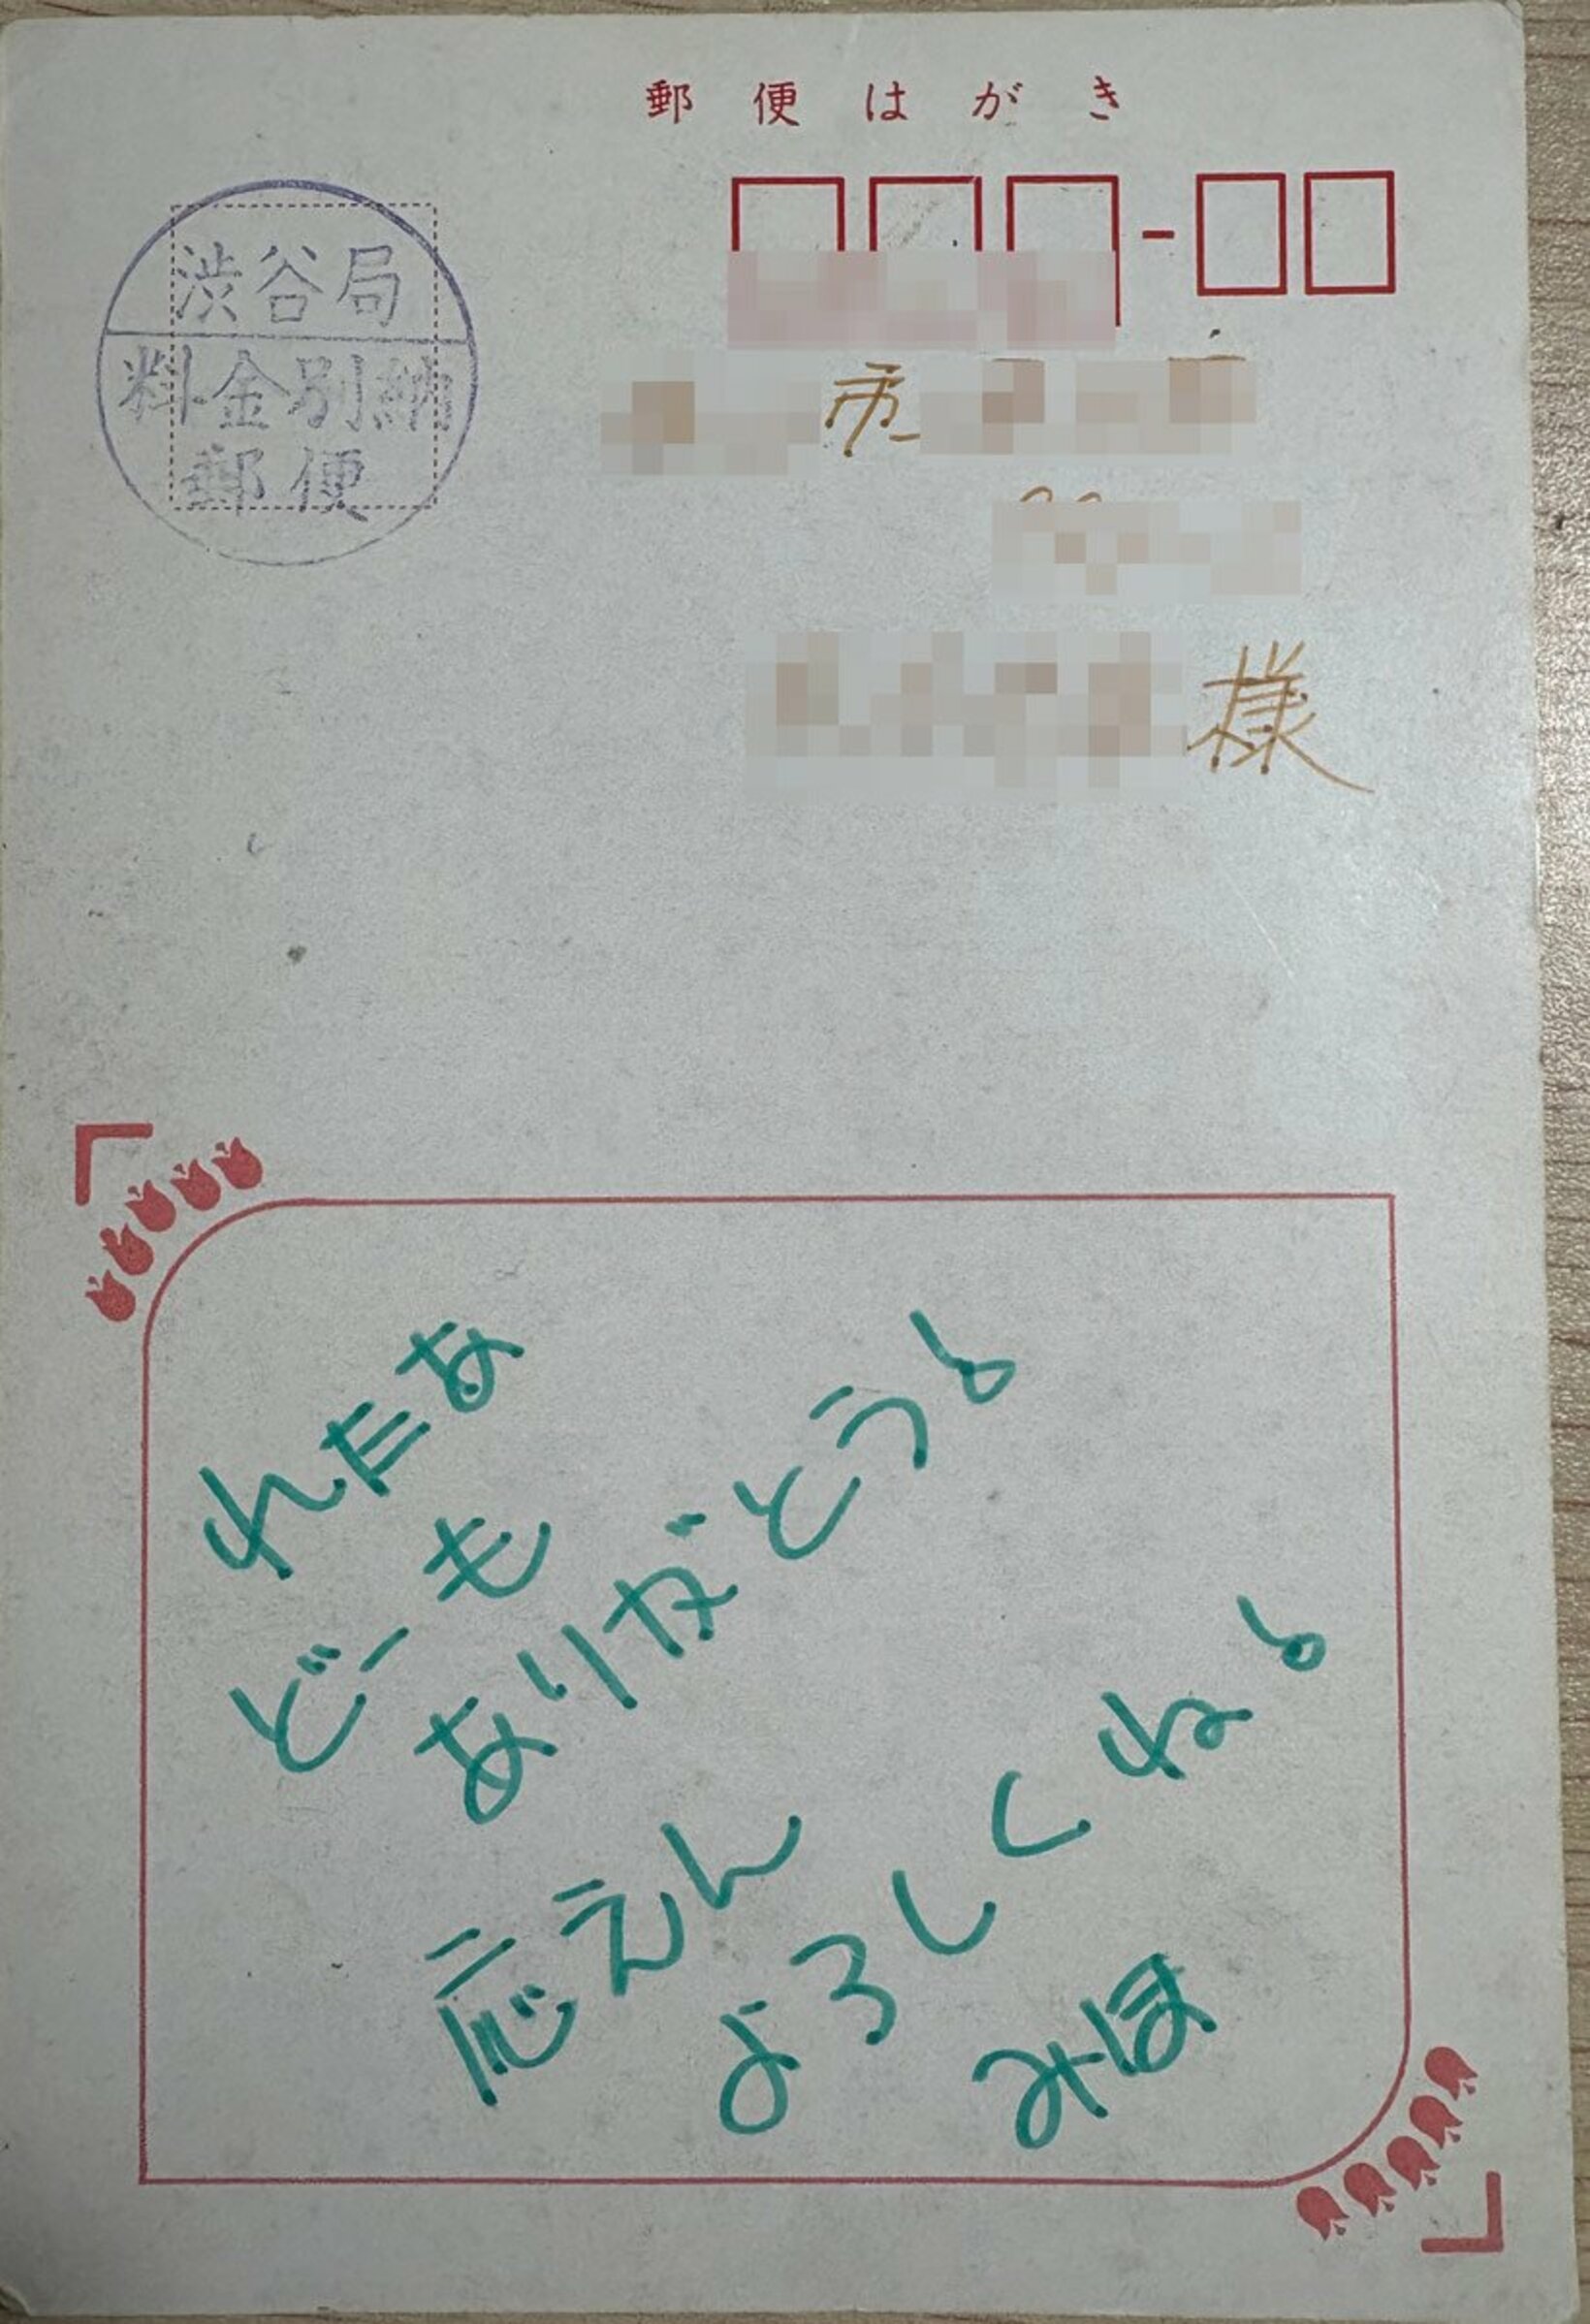 郵便はがき
渋谷局
料金別納
郵便
市
様
れたな
どーも
ありがとうよ
応えん
よろしくねよ
みほ